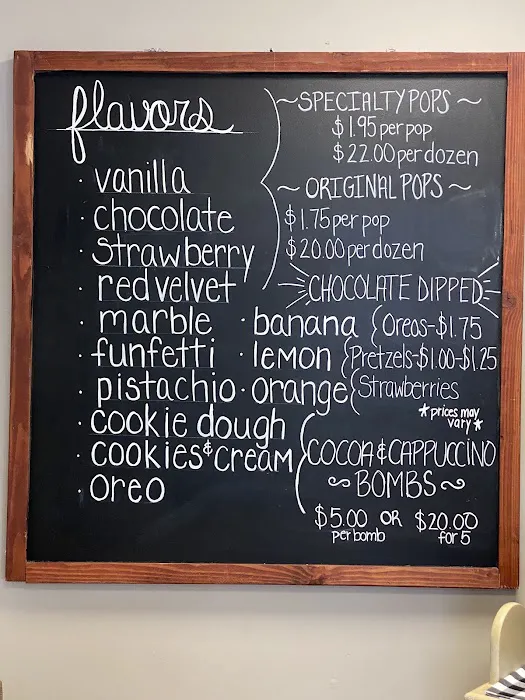 flavors
· vanilla
· chocolate
· strawberry
· red velvet
· marble
· funfetti
· pistachio
· cookie dough
· cookies & cream
· oreo
· banana
· lemon
· orange
~ SPECIALTY POPS ~
$1.95 per pop
$22.00 per dozen
~ ORIGINAL POPS ~
$1.75 per pop
$20.00 per dozen
CHOCOLATE DIPPED
Oreos-$1.75
Pretzels-$1.00-$1.25
Strawberries
*prices may
vary*
COCOA & CAPPUCCINO
~ BOMBS ~
$5.00 OR $20.00
per bomb for 5